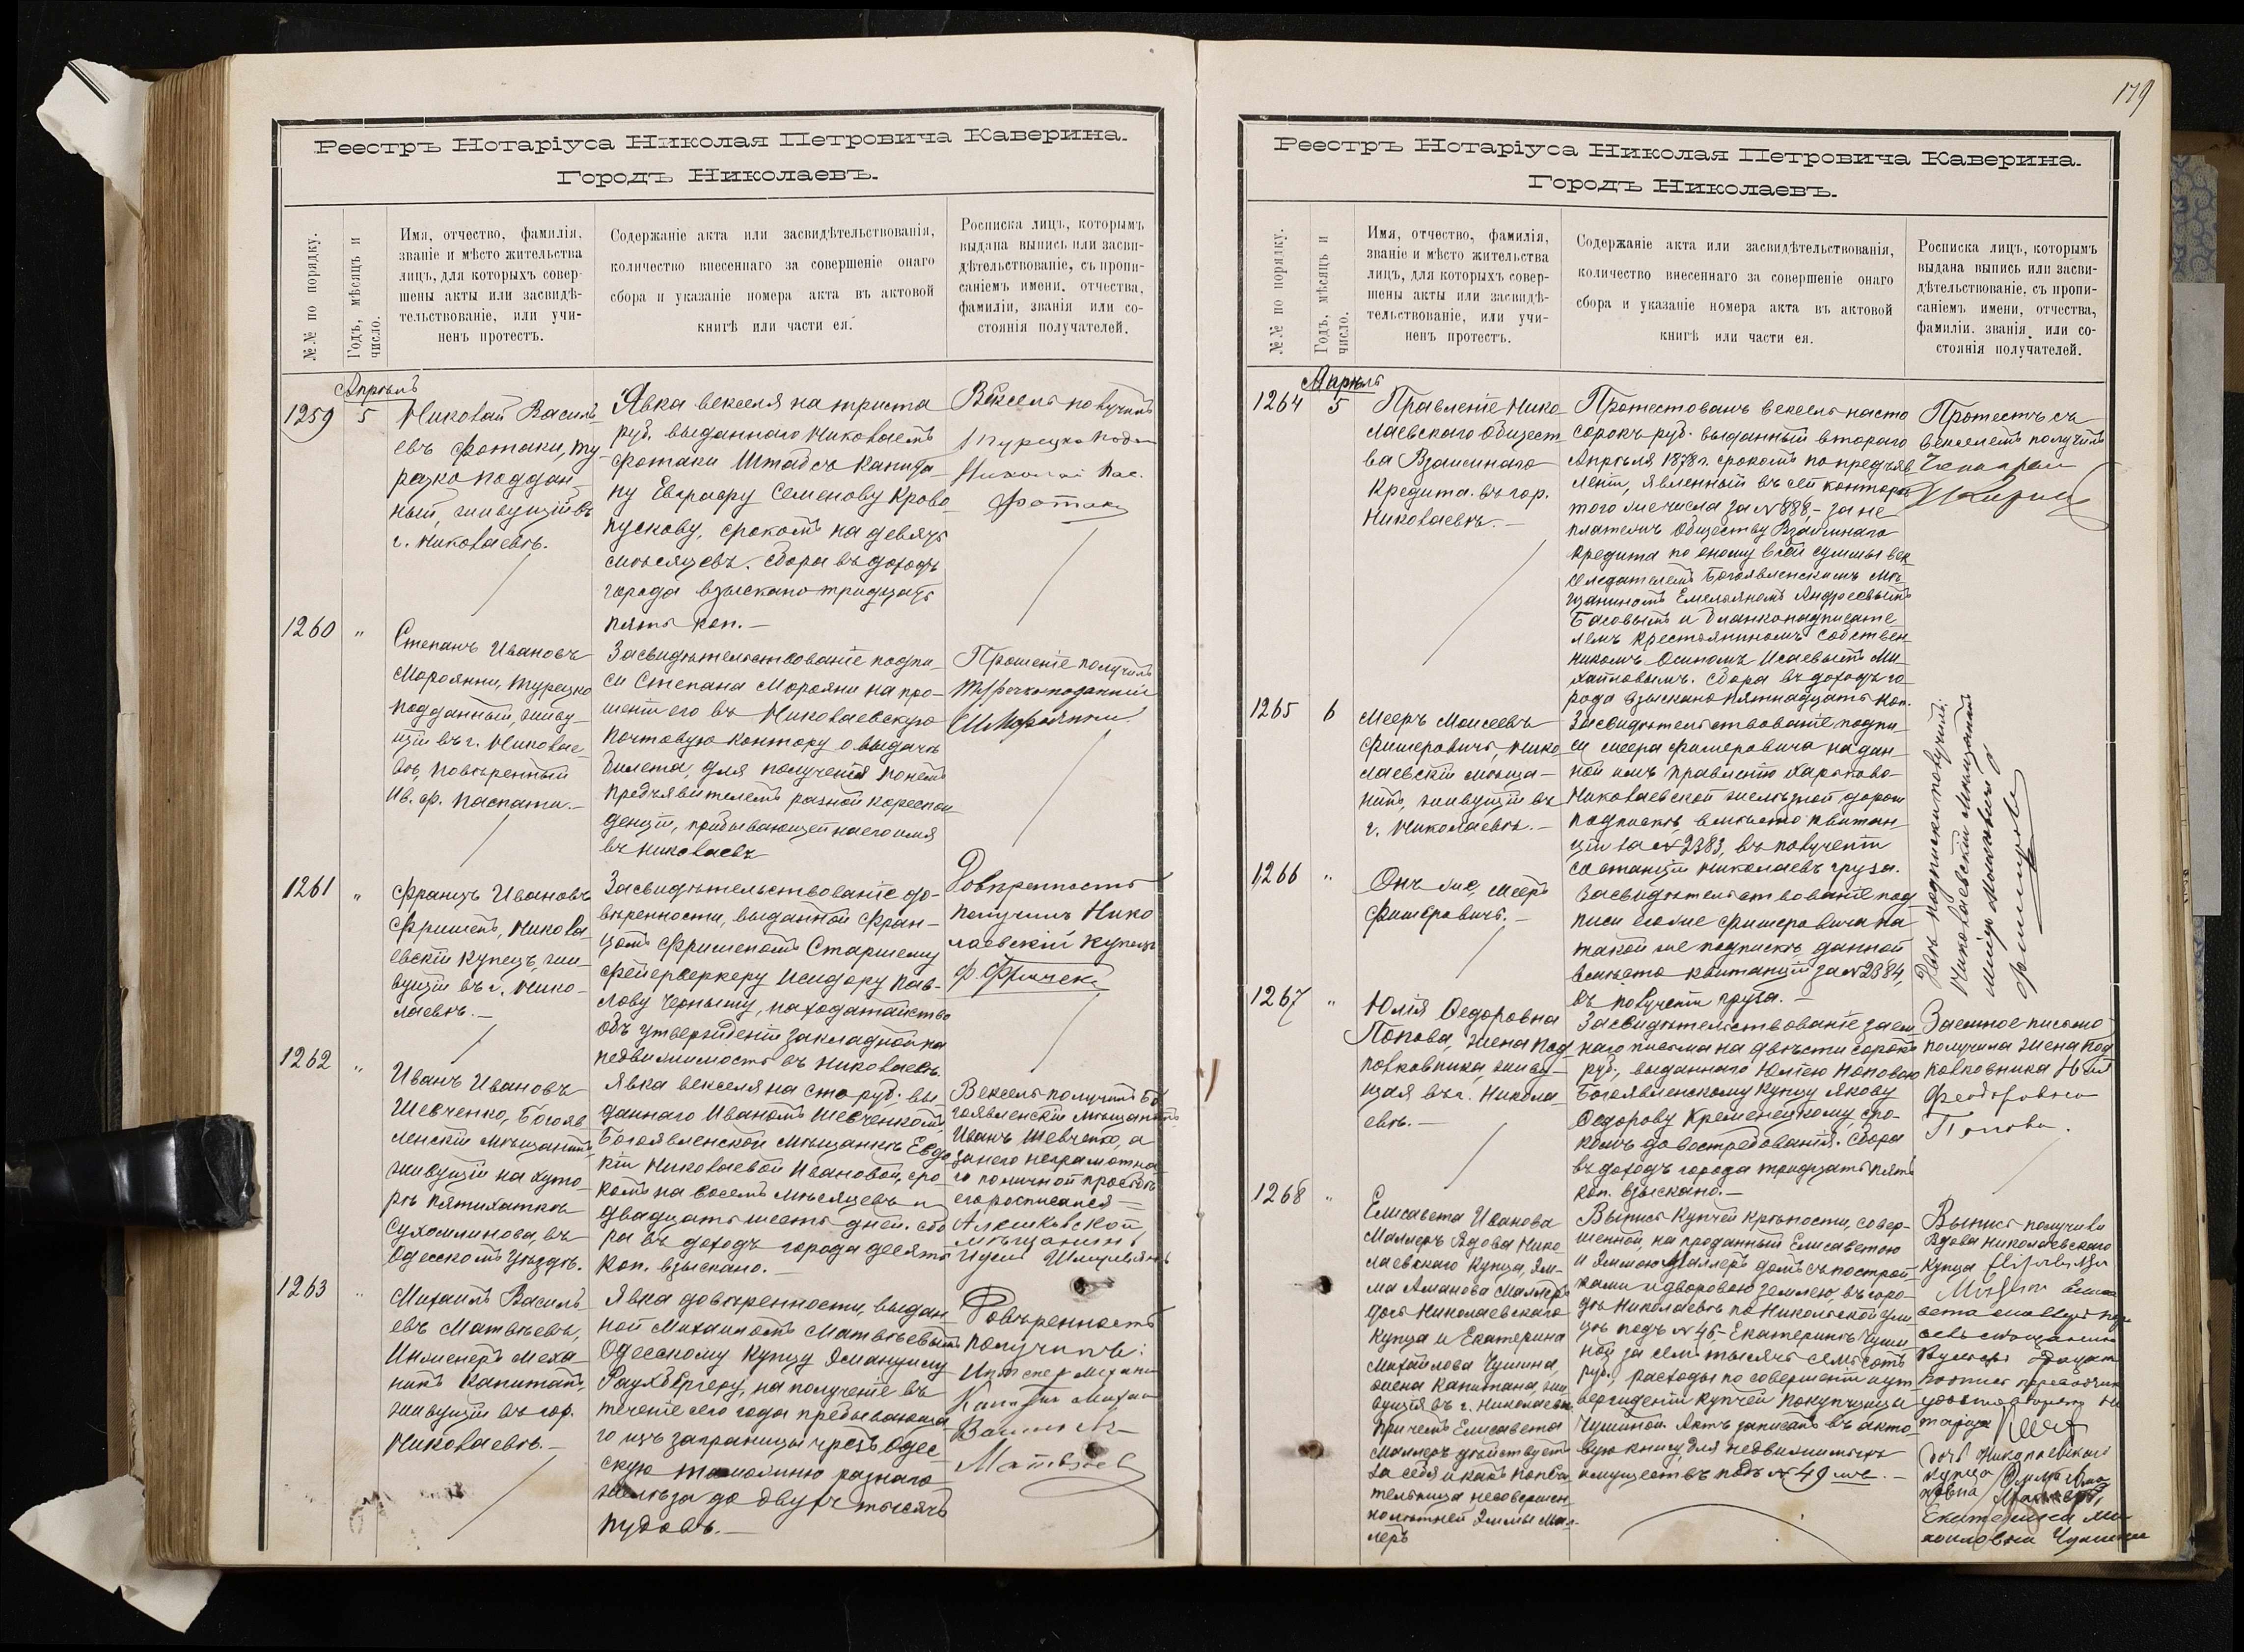 Реестръ Нотаріуса Николая Петровича Каверина.
Городъ Николаевъ.
№№ по порядку.
Годъ, мѣсяцъ и число.
Имя, отчество, фамилія,
званіе и мѣсто жительства
лицъ, для которыхъ совер-
шены акты или засвидѣ-
тельствованіе, или учи-
ненъ протестъ.
Содержаніе акта или засвидѣтельствованія,
количество внесеннаго за совершеніе онаго
сбора и указаніе номера акта въ актовой
книгѣ или части ея.
Росписка лицъ, которымъ
выдана выпись или засви-
дѣтельствованіе, съ пропи-
саніемъ имени, отчества,
фамиліи, званія или со-
стоянія получателей.
Апрѣль
1259
5
Николай Василь
евъ Фотаки, ту
рецко поддан-
ный, живущій въ
г. Николаевѣ.
Явка векселя на триста
руб. выданнаго Николаемъ
Фотаки Штабсъ Капита-
ну Евграфу Семенову Крово
пускову, срокомъ на девять
мѣсяцевъ. Сбора въ доходъ
города взыскано тридцать
пять коп.—
Вексель получилъ
Турецко подан
Николай Вас.
Фотаки
1260
"
Степанъ Ивановъ
Мороянни, турецко
подданный, живу-
щій въ г. Николае
вѣ, повѣренный
Ив. Ф. Паспати.—
Засвидѣтельствованіе подпи-
си Степана Морояни на про-
шеніи его въ Николаевскую
почтовую контору о выдачѣ
билета, для полученія по немъ
предъявителемъ разной кореспон
денціи, прибывающей на его имя
въ Николаевъ
Прошеніе получилъ
турѣцкоподанный
1261
"
Францъ Ивановъ
Фришенъ, Никола-
евскій купецъ, жи-
вущій въ г. Нико-
лаевѣ.—
Засвидѣтельствованіе до-
вѣренности, выданной Фран-
цомъ Фришеномъ Старшему
Фейерверкеру Исидору Пав-
лову Черныму, на ходатайство
объ утвержденіи закладной на
недвижимость въ Николаевѣ
Довѣренность
получилъ Нико
лаевскій купецъ
Ф. Фришенъ
1262
"
Иванъ Ивановъ
Шевченко, Богояв
ленскій мѣщанинъ,
живущій на хуто-
рѣ Пятихаткѣ
Сухомлинова, въ
Одесскомъ уѣздѣ.
Явка векселя на сто руб. вы
даннаго Иваномъ Шевченкомъ
Богоявленской мѣщанкѣ Евдо
кіи Николаевой Ивановой, сро
комъ на восемь мѣсяцевъ и
двадцать шесть дней. Сбо
ра въ доходъ города десять
коп. взыскано.—
Вексель получилъ Бо
гоявленскій мѣщанинъ
Иванъ Шевченко, а
за него неграмотна-
го по личной просьбѣ
его росписался=
Алешковской
мѣщанинъ
1263
"
Михаилъ Василь-
евъ Матвѣевъ,
Инженеръ Меха-
никъ Капитанъ,
живущій въ гор.
Николаевѣ.—
Явка довѣренности, выдан
ной Михаиломъ Матвѣевымъ
Одесскому купцу Эмануилу
Раухбергеру, на полученіе въ
теченіе сего года пребывающа
го изъ заграницы чрезъ Одес
скую таможню разнаго
желѣза до двухъ тысячъ
пудовъ.—
Довѣренность
получилъ:
Инженер механик
Капитан Михаил
Васильев
Матвѣев
179
Реестръ Нотаріуса Николая Петровича Каверина.
Городъ Николаевъ.
№№ по порядку.
Годъ, мѣсяцъ и число.
Имя, отчество, фамилія,
званіе и мѣсто жительства
лицъ, для которыхъ совер-
шены акты или засвидѣ-
тельствованіе, или учи-
ненъ протестъ.
Содержаніе акта или засвидѣтельствованія,
количество внесеннаго за совершеніе онаго
сбора и указаніе номера акта въ актовой
книгѣ или части ея.
Росписка лицъ, которымъ
выдана выпись или засви-
дѣтельствованіе, съ пропи-
саніемъ имени, отчества,
фамиліи, званія или со-
стоянія получателей.
Апрѣль
1264
5
Правленіе Нико-
лаевскаго Общест
ва Взаимнаго
Кредита въ гор.
Николаевѣ.—
Протестованъ вексель на сто
сорокъ руб. выданный втораго
Апрѣля 1878 г. срокомъ по предъяв
леніи, явленный въ сей конторѣ
того же числа за № 888,— за не
платежъ Обществу Взаимнаго
Кредита по оному всей суммы век
селедателемъ Богоявленскимъ мѣ-
щаниномъ Емельяномъ Андреевымъ
Басовымъ и бланконадписате
лемъ крестьяниномъ собствен
никомъ Осипомъ Исаевымъ Ми-
хайловымъ. Сбора въ доходъ го-
рода взыскано пятнадцать коп.
Протестъ съ
векселемъ получилъ
1265
6
Мееръ Моисеевъ
Фишеровичъ, Нико
лаевскій мѣща-
нинъ, живущій въ
г. Николаевѣ.—
Засвидѣтельствованіе подпи
си Меера Фишеровича на дан-
ной имъ Правленію Харьково-
Николаевской желѣзной дорог
подпискѣ, вмѣсто квитан-
ціи за № 2383, въ полученіи
со станціи Николаевъ груза.
Двѣ подписки получилъ:
Николаевскій мѣщанинъ
1266
"
Онъ же, Мееръ
Фишеровичъ.—
Засвидѣтельствованіе под
писи его же Фишеровича на
такой же подпискѣ, данной
вмѣсто квитанціи за № 2384,
въ полученіи груза.—
1267
"
Юлія Ѳедоровна
Попова, жена под
полковника, живу-
щая въ г. Никола
евѣ.—
Засвидѣтельствованіе заем-
наго письма на двѣсти сорокъ
руб., выданнаго Юліею Поповою
Богоявленскому купцу Якову
Ѳедорову Кременецкому, сро-
комъ до востребованія. Сбора
въ доходъ города тридцать пять
коп. взыскано.—
Заемное письмо
получила жена под
полковника Юлія
Феодоровна
Попова.
1268
"
Елисавета Иванова
Маллеръ вдова Нико
лаевскаго купца, Эм-
ма Аманова Маллеръ
дочь Николаевскаго
купца и Екатерина
Михайлова Чушина,
жена Капитана, жи
вущія въ г. Николаевѣ
причемъ Елисавета
Маллеръ дѣйствуетъ
за себя и какъ попечи
тельница несовершен-
нолѣтней Эммы Мал-
леръ
Выпись купчей крѣпости, совер-
шенной, на проданный Елисаветою
и Эммою Маллеръ домъ съ построй-
ками и дворовою землею, въ горо-
дѣ Николаевѣ по Никольской ули
цѣ подъ № 46,— Екатеринѣ Чуши
ной за семь тысячъ семьсотъ
руб., расходы по совершенію и ут
вержденію купчей покупщицы
Чушиной. Актъ записанъ въ акто-
вую книгу для недвижимыхъ
имуществъ подъ № 49 мъ.—
Выпись получили
Вдова Николаевскаго
купца
Дочь Николаевскаго
купца Эмма Ама
новна Маллеръ,
Екатерина Ми
хаиловна Чушина